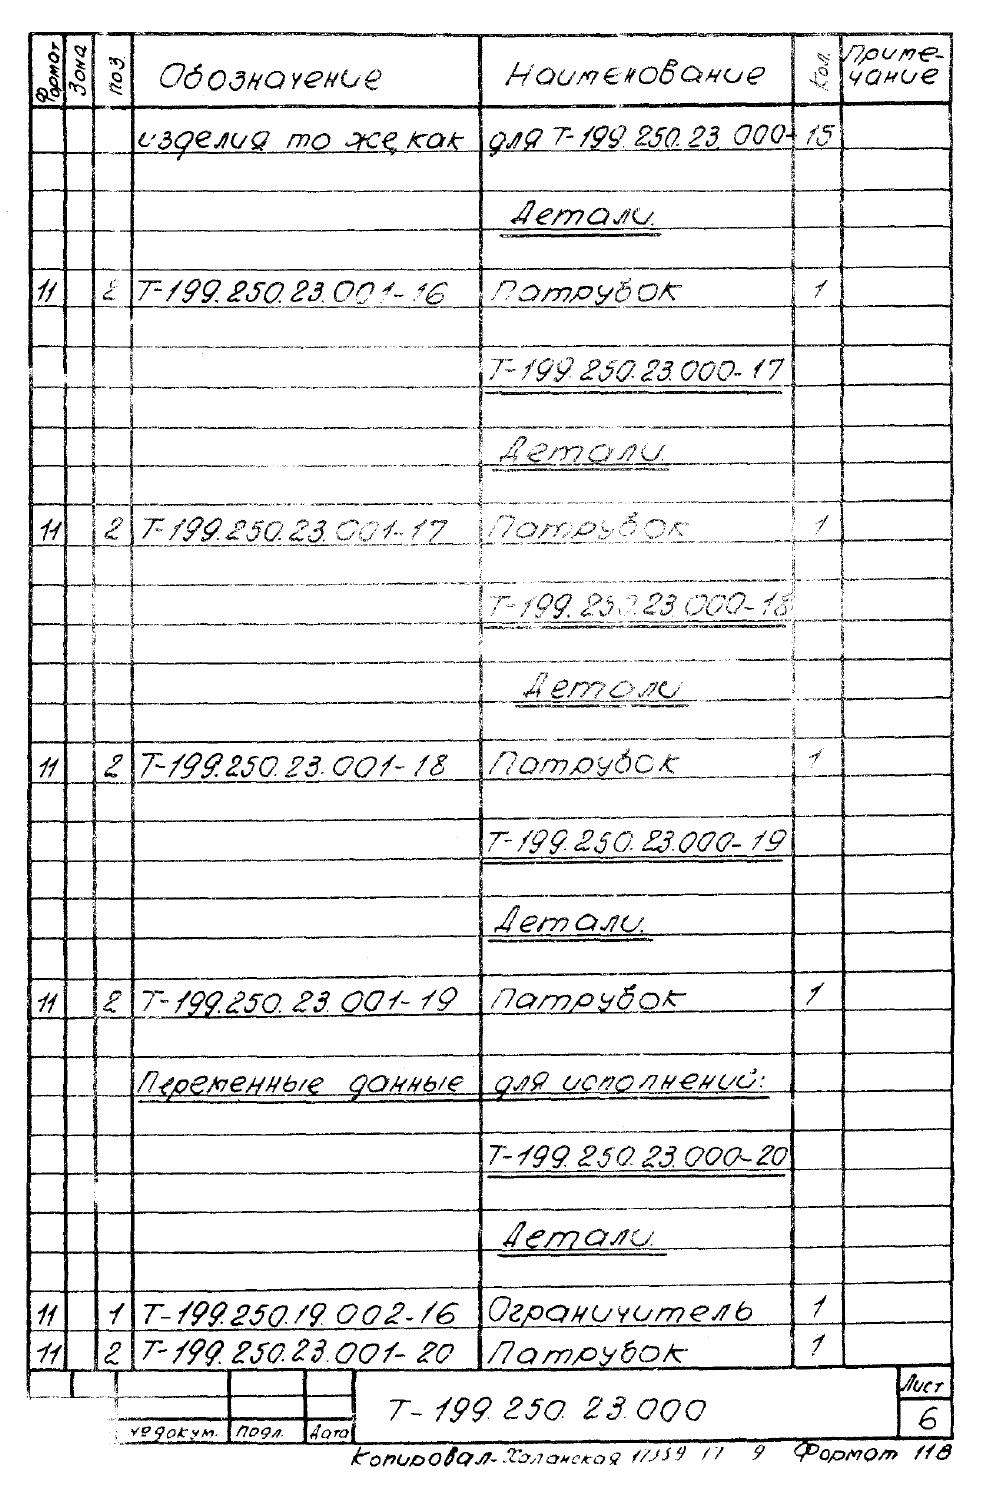 Формат Зона Поз Обозначение Наименование Кол. Приме-
чание
изделия то же, как для Т-199.250.23.000-15
Детали.
11 2 Т-199.250.23.001-16 Патрубок 1
Т-199.250.23.000-17
Детали.
11 2 Т-199.250.23.001-17 Патрубок 1
Т-199.250.23.000-18
Детали
11 2 Т-199.250.23.001-18 Патрубок 1
Т-199.250.23.000-19
Детали.
11 2 Т-199.250.23.001-19 Патрубок 1
Переменные данные для исполнений:
Т-199.250.23.000-20
Детали.
11 1 Т-199.250.19.002-16 Ограничитель 1
11 2 Т-199.250.23.001-20 Патрубок 1
Лист
Т-199.250.23.000 6
№докум. Подл. Дата
Копировал- Формат 11В